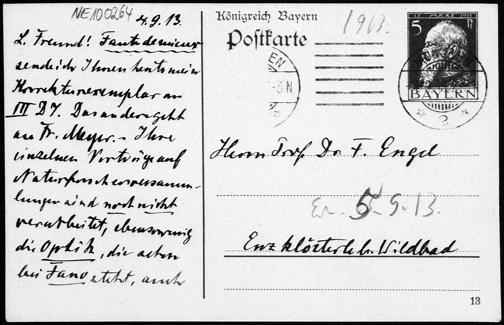 NE100264
4.9.13.
L. Freund! Faute de mieux
sende ich Ihnen heute mein
Korrekturexemplar von
III D7. Das andere geht
an Fr. Meyer. – Ihre
einzelnen Vorträge auf
Naturforscherversamm-
lungen sind noch nicht
verarbeitet, ebensowenig
die Optik, die schon
bei Fano steht, auch
Königreich Bayern
Postkarte
1913.
5 Pf
BAYERN
Herrn Prof. Dr. F. Engel
5.9.13.
Enzklösterle b. Wildbad
13